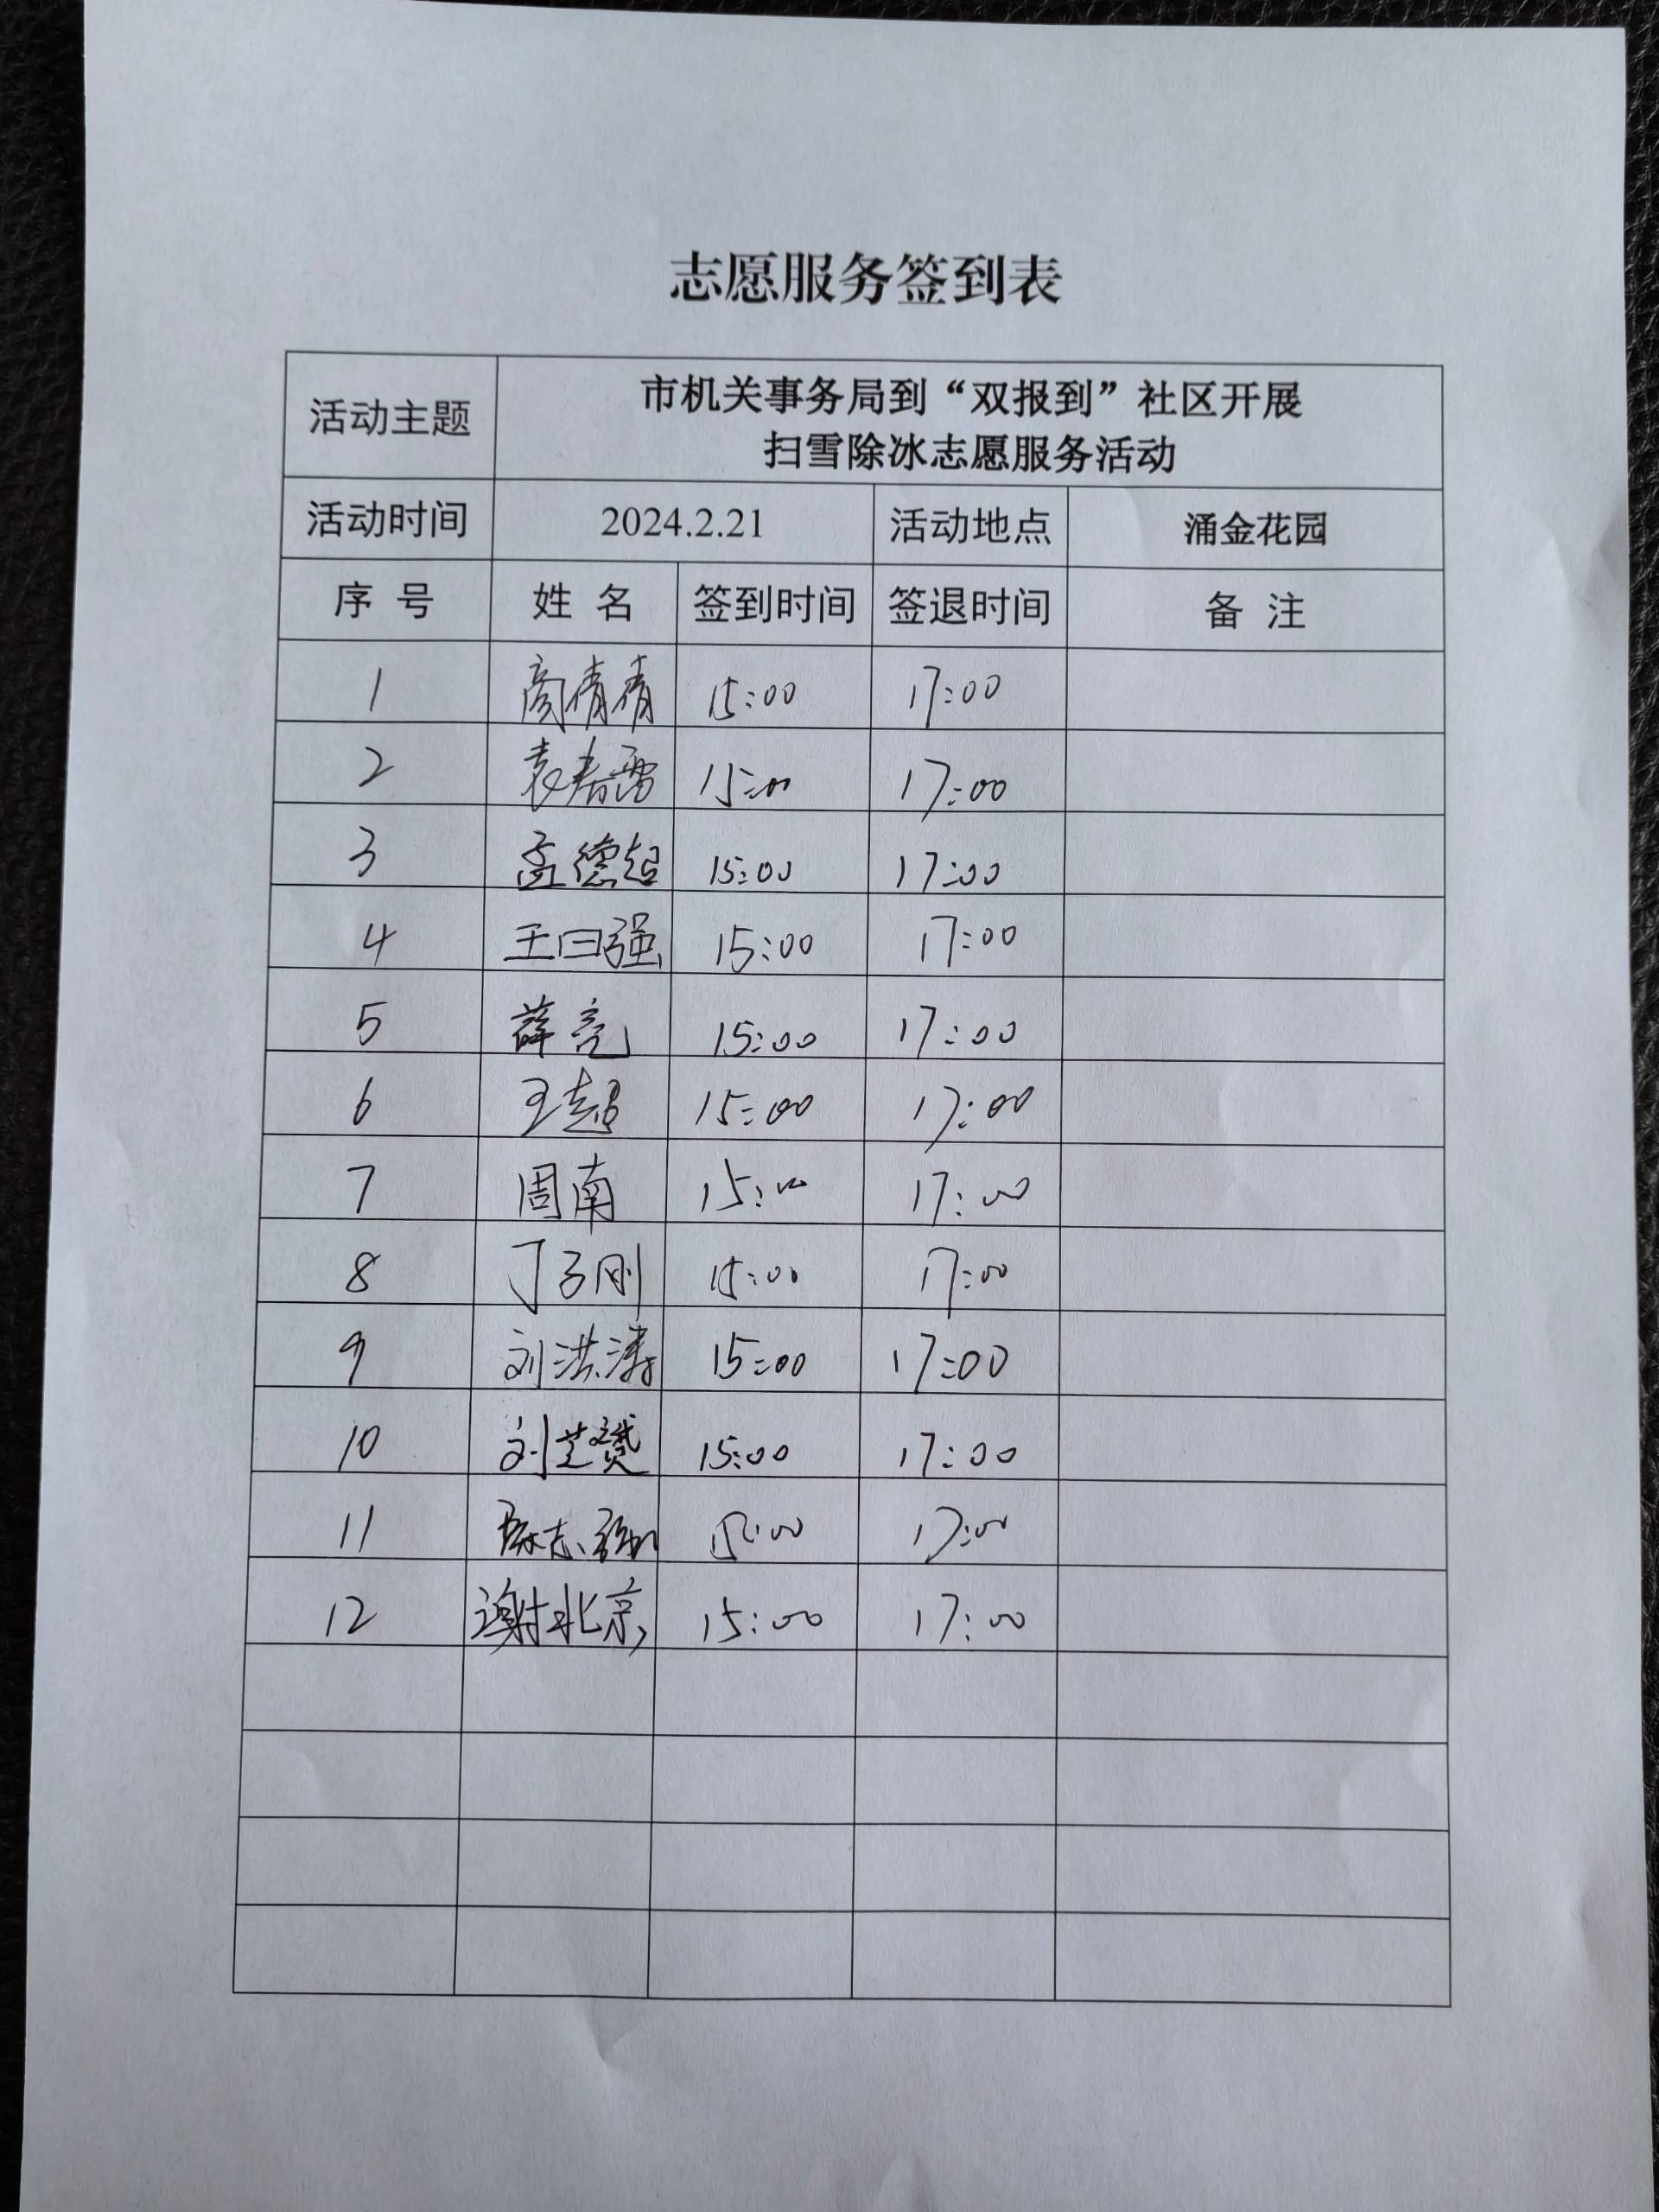 志愿服务签到表
活动主题 市机关事务局到“双报到”社区开展
扫雪除冰志愿服务活动
活动时间 2024.2.21 活动地点 涌金花园
序 号 姓 名 签到时间 签退时间 备 注
1 倩倩 15:00 17:00
2 袁春雷 15:00 17:00
3 孟德超 15:00 17:00
4 王曰强 15:00 17:00
5 薛亮 15:00 17:00
6 王超 15:00 17:00
7 周南 15:00 17:00
8 丁子刚 15:00 17:00
9 刘洪涛 15:00 17:00
10 刘芝赟 15:00 17:00
11 陈志强 15:00 17:00
12 谢北京 15:00 17:00